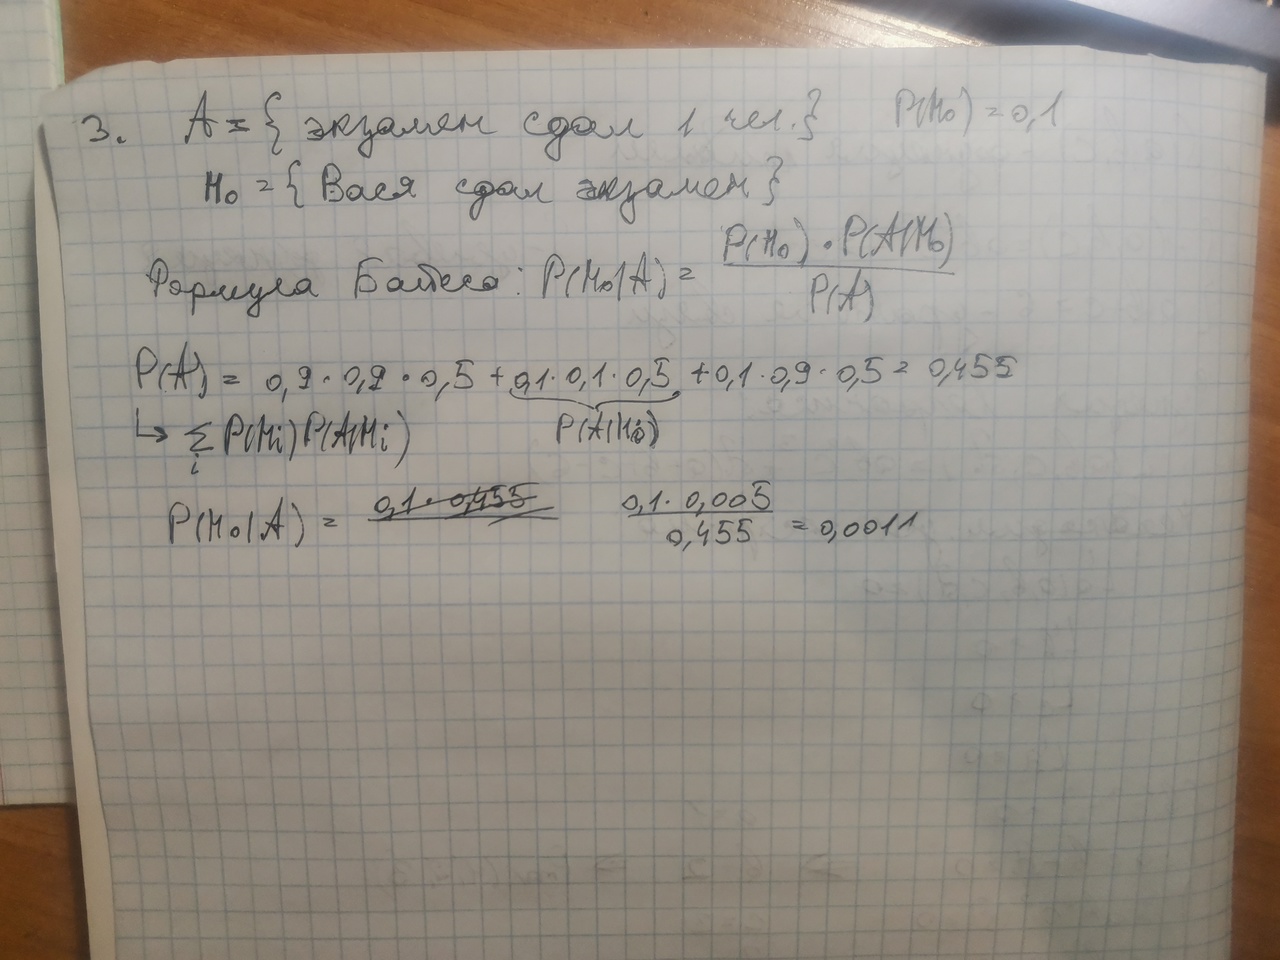 3. A = { экзамен сдал 1 чел.} P(H₀) = 0,1
H₀ = { Вася сдал экзамен}
Формула Байеса: P(H₀|A) = P(H₀) · P(A|H₀) / P(A)
P(A) = 0,9 · 0,9 · 0,5 + 0,1 · 0,1 · 0,5 + 0,1 · 0,9 · 0,5 = 0,455
↳ Σ P(Hi) P(A|Hi) P(A|H₀)
i
P(H₀|A) = 0,1 · 0,455 0,1 · 0,005 / 0,455 = 0,0011